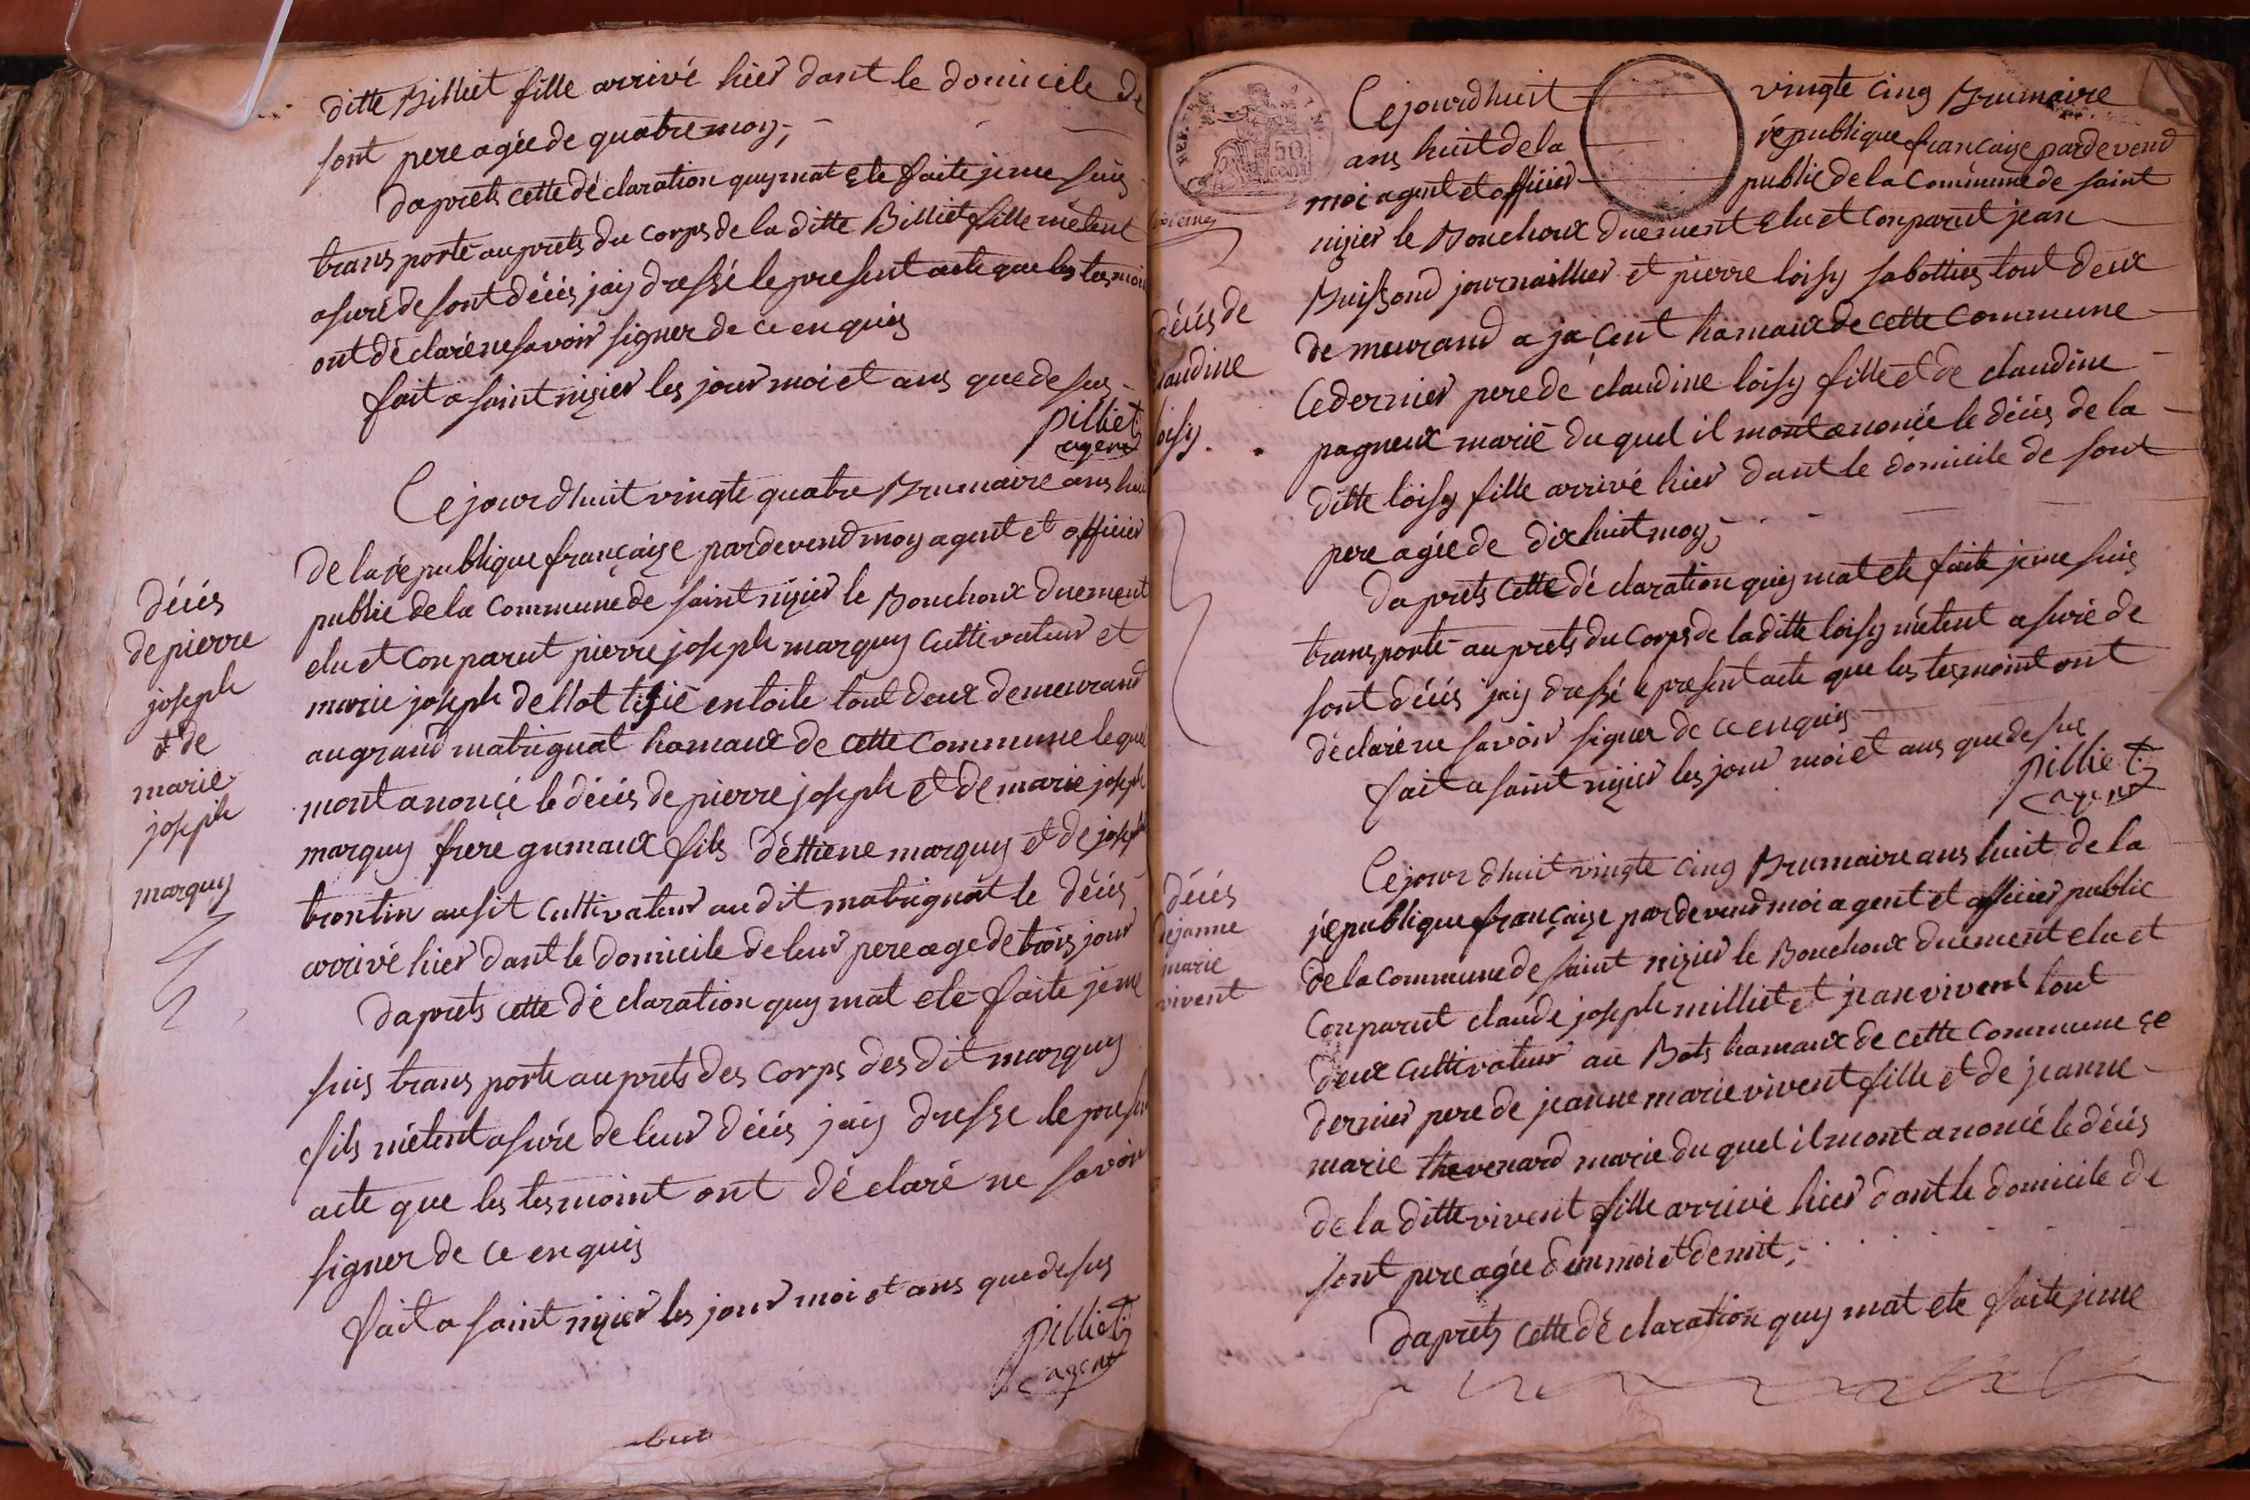 ditte Billiet fille arrivé hier dant le domicile de
sont pere agée de quatre moy,
daprets cette dé claration quy mat ete faite je me suis
trans porté au prets du corps de la ditte Billiet fille métent
asuré de sont décés jay dressé le present acte que les tesmoin
ont dé claré ne savoir signer de ce enquis
fait a saint nizier les jour moi et ans que de sus
pilliet
agent
Ce jourdhuit vingte quatre Brumaire ans huit
de la république française pardevend moy agent et officier
public de la commune de saint nizier le Bouchoux duement
elu et Conparut pierre joseph marquy cultivateur et
marie joseph dellot tisié entoile tout deux demeurand
au grand matrignat hamaux de cette commune lequel
mont anoncé le décés de pierre joseph et de marie joseph
marquy frere gumaux fils déttiene marquy et de joseph
trontin ausit cultivateur audit matrignat le décés
arrivé hier dant le domicile de leur pere age de trois jour
daprets cette dé claration quy mat ete faite je me
suis trans porte au prets des corps des dit marquy
fils métent asurée de leur décés jay dresse le presen
acte que les tesmoint ont dé claré ne savoir
signer de ce enquis
fait a saint nizier les jour moi et ans que de sus
pilliet
agent
décés
de pierre
joseph
et de
marie
joseph
marquy
REP. FRA
50
cent
Ce jourdhuit vingte cinq Brumaire
ans huit de la république francaise pardevend
moi agent et officier public de la commune de saint
nizier le Bouchoux duement elu et Conparut jean
Buissond journaillier et pierre loisy sabottier tout deux
de meurand a ja cent hamaux de cette commune
Ce dernier pere de claudine loisy fille et de claudine
pagneux marié du quel il mont anoncée le décés de la
ditte loisy fille arrivé hier dant le domicile de sont
pere agée de dix huit moy,
da prets cette dé claration quy mat ete faite je me suis
trans porté au prets du corps de la ditte loisy métent asuré de
sont décés jay dressé le present acte que les tesmoint ont
dé claré ne savoir signer de ce enquis
fait a saint nizier les jour moi et ans que de sus
pilliet
agent
décés de
laudine
oisy.
Ce jour dhuit vingte cinq Brumaire ans huit de la
république française pardevend moi agent et officier public
de la commune de saint nizier le Bouchoux duement elu et
Conparut claude joseph milliet et jean vivent tout
deux cultivateur au Bats hamaux de cette commune ce
dernier pere de jeanne marie vivent fille et de jeanne
marie thevenard marie du quel il mont anoncé le décés
de la ditte vivent fille arrivé hier dant le domicile de
sont pere agée dun moi et demit,
daprets cette dé claration quy mat ete faite je me
décés
dejanne
marie
vivent